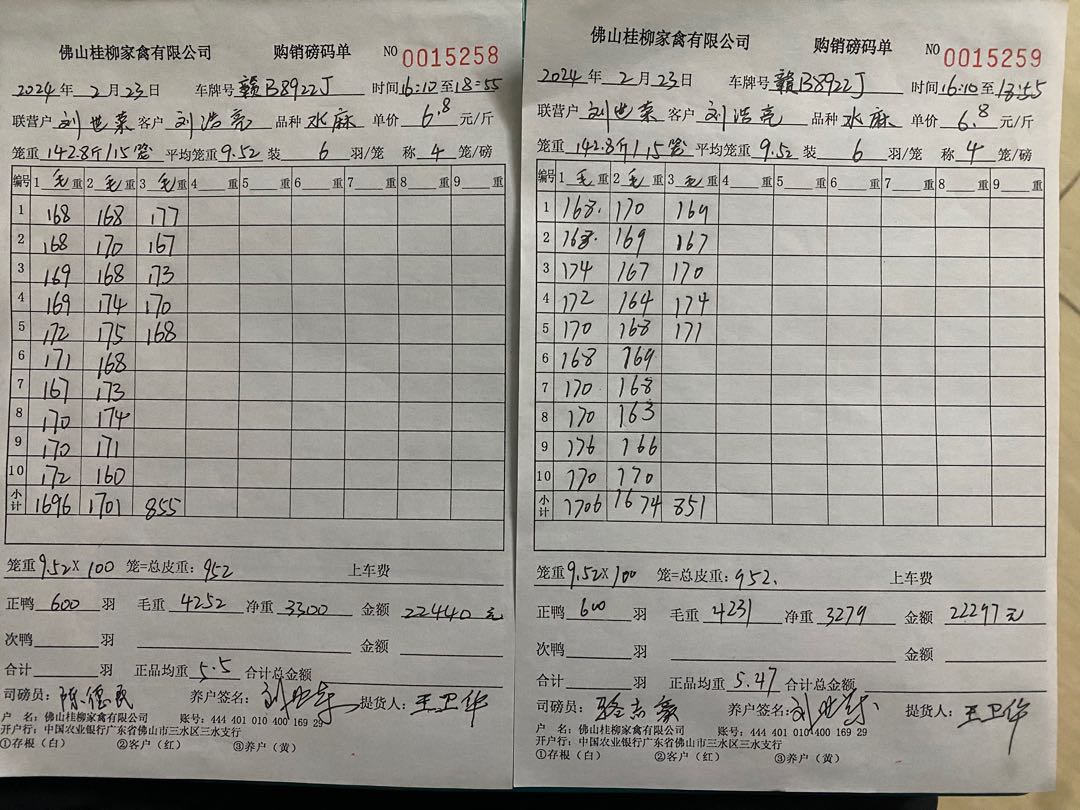 佛山桂柳家禽有限公司 购销磅码单 NO 0015258
2024年 2月23日 车牌号 赣B8922J 时间16:10至18:55
联营户 刘世荣 客户 刘浩亮 品种 水麻 单价 6.8 元/斤
笼重 142.8斤/15笼 平均笼重 9.52 装 6 羽/笼 称 4 笼/磅
编号 1 毛 重 2 毛 重 3 毛 重 4 重 5 重 6 重 7 重 8 重 9 重
1 168 168 177
2 168 170 167
3 169 168 173
4 169 174 170
5 172 175 168
6 171 168
7 167 173
8 170 174
9 170 171
10 172 160
小计 1696 1701 855
笼重 9.52×100 笼=总皮重：952 上车费
正鸭 600 羽 毛重 4252 净重 3300 金额 22440元
次鸭 羽 金额
合计 羽 正品均重 5.5 合计总金额
司磅员：陈德民 养户签名： 提货人：王卫华
户 名：佛山桂柳家禽有限公司 账号：444 401 010 400 169 29
开户行：中国农业银行广东省佛山市三水区三水支行
①存根（白） ②客户（红） ③养户（黄）
佛山桂柳家禽有限公司 购销磅码单 NO 0015259
2024年 2月23日 车牌号 赣B8922J 时间16:10至18:55
联营户 刘世荣 客户 刘浩亮 品种 水麻 单价 6.8 元/斤
笼重 142.8斤/15笼 平均笼重 9.52 装 6 羽/笼 称 4 笼/磅
编号 1 毛 重 2 毛 重 3 毛 重 4 重 5 重 6 重 7 重 8 重 9 重
1 168. 170 169
2 168. 169 167
3 174 167 170
4 172 164 174
5 170 168 171
6 168 169
7 170 168
8 170 163
9 176 166
10 170 170
小计 1706 1674 851
笼重 9.52×100 笼=总皮重：952. 上车费
正鸭 600 羽 毛重 4231 净重 3279 金额 22297元
次鸭 羽 金额
合计 羽 正品均重 5.47 合计总金额
司磅员： 养户签名： 提货人：王卫华
户 名：佛山桂柳家禽有限公司 账号：444 401 010 400 169 29
开户行：中国农业银行广东省佛山市三水区三水支行
①存根（白） ②客户（红） ③养户（黄）